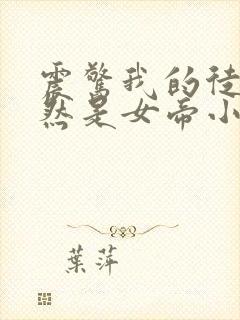 震驚我的徒
然是女帝小
葉萍